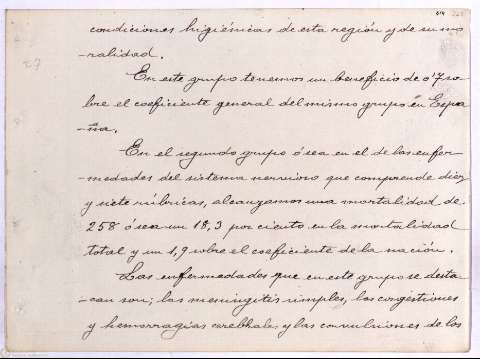 condiciones higiénicas de esta región y de su mo
-ralidad.
En este grupo tenemos un beneficio de 0'7 so-
bre el coeficiente general del mismo grupo en Espa
-ña.
En el segundo grupo ó sea en el de las enfer-
-medades del sistema nervioso que comprende diez
y siete rúbricas, alcanzamos una mortalidad de
258 ó sea un 18,3 por ciento en la mortalidad
total y un 1,9 sobre el coeficiente de la nación.
Las enfermedades que en este grupo se desta-
-can son; las meningitis simples, las congestiones
y hemorragias cerebrales y las convulsiones de los